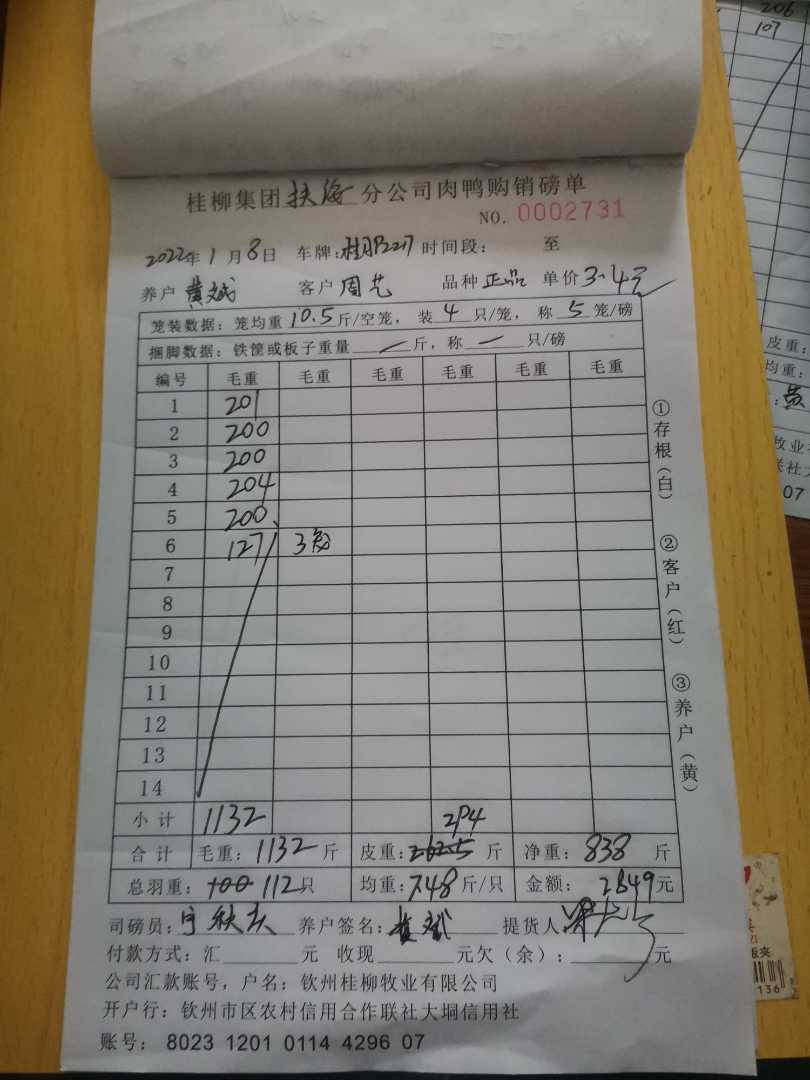 206
107
桂柳集团扶海分公司肉鸭购销磅单
NO. 0002731
2022年1月8日 车牌: 时间段: 至
养户黄斌 客户周艺 品种正品 单价3.4元
笼装数据: 笼均重10.5斤/空笼, 装4只/笼, 称5笼/磅
捆脚数据: 铁筐或板子重量 — 斤, 称 — 只/磅
编号 毛重 毛重 毛重 毛重 毛重 毛重
1 201
2 200
3 200
4 204
5 200
6 127 3
7
8
9
10
11
12
13
14
小计 1132 294
合计 毛重: 1132斤 皮重: 262.5斤 净重: 838斤
总羽重: 100 112只 均重: 7.48斤/只 金额: 2849元
司磅员: 养户签名: 黄斌 提货人
付款方式: 汇 元 收现 元欠(余): 元
公司汇款账号, 户名: 钦州桂柳牧业有限公司
开户行: 钦州市区农村信用合作联社大垌信用社
账号: 8023 1201 0114 4296 07
①存根(白)
②客户(红)
③养户(黄)
皮重:
均重:
牧业
联社大
07
136